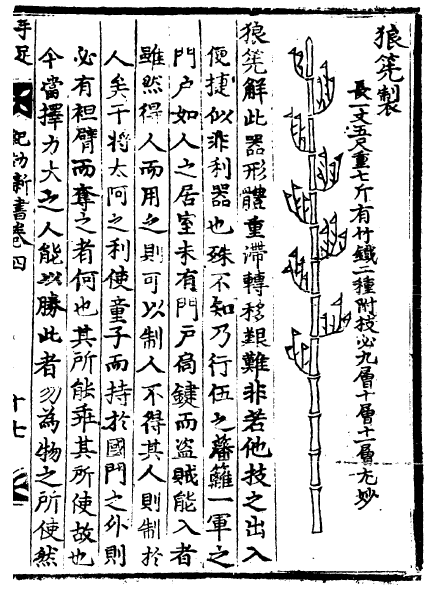 狼筅製
長一丈五尺重七斤有竹鐵二種附技必九層十層十一層尤妙
狼筅解此器形體重滯轉移艱難非若他技之出入
便捷似非利器也殊不知乃行伍之藩籬一軍之
門户如人之居室未有門戸扃鍵而盜賊能入者
雖然得人而用之則可以制人不得其人則制於
人矣干將太阿之利使童子而持於國門之外則
必有袒臂而奪之者何也其所能乖其所使故也
今當擇力大之人能以勝此者勿為物之所使然
手足
紀効新書卷四
十七